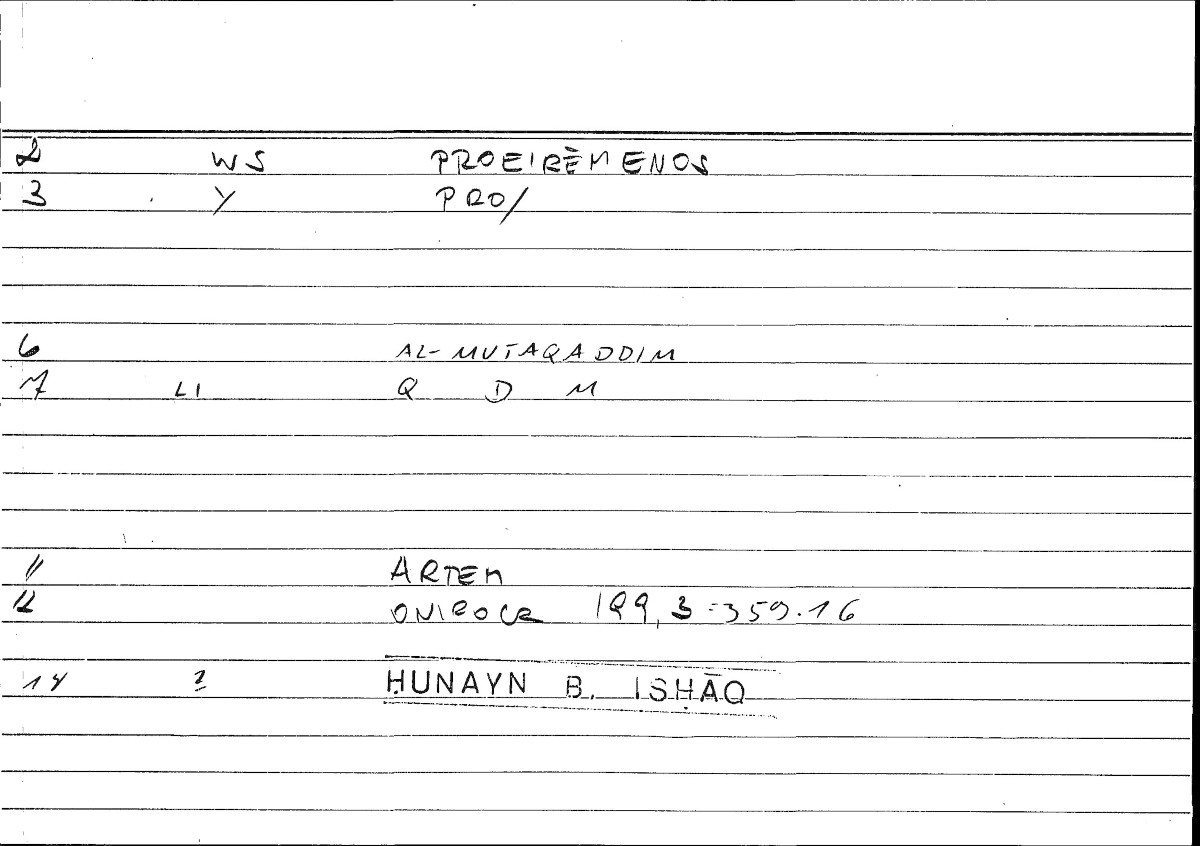 2 WS PROEIRĒMENOS
3 Y PRO/
6 AL-MUTAQADDIM
7 LI Q D M
11 ARTEM
12 ONIROCR 199,3=359.16
14 ? ḤUNAYN B. ISḤĀQ